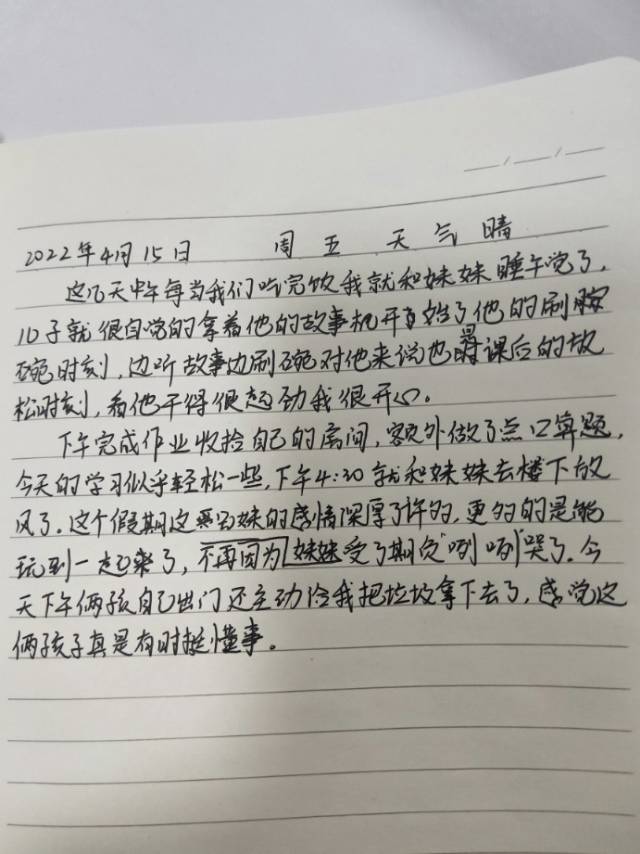 2022年4月15日 周五 天气晴
这几天中午每当我们吃完饭我就和妹妹睡午觉了，
10子就很自觉的拿着他的故事机开始了他的刷
碗时刻，边听故事边刷碗对他来说也是课后的放
松时刻，看他干得很起劲我很开心。
下午完成作业收拾自己的房间，额外做了点口算题，
今天的学习似乎轻松一些，下午4:30就和妹妹去楼下放
风了。这个假期这兄妹的感情深厚了许多，更多的是能
玩到一起来了，不再因为妹妹受了期负"咧咧"哭了。今
天下午俩孩自己出门还主动给我把垃圾拿下去了，感觉这
俩孩子真是有时挺懂事。